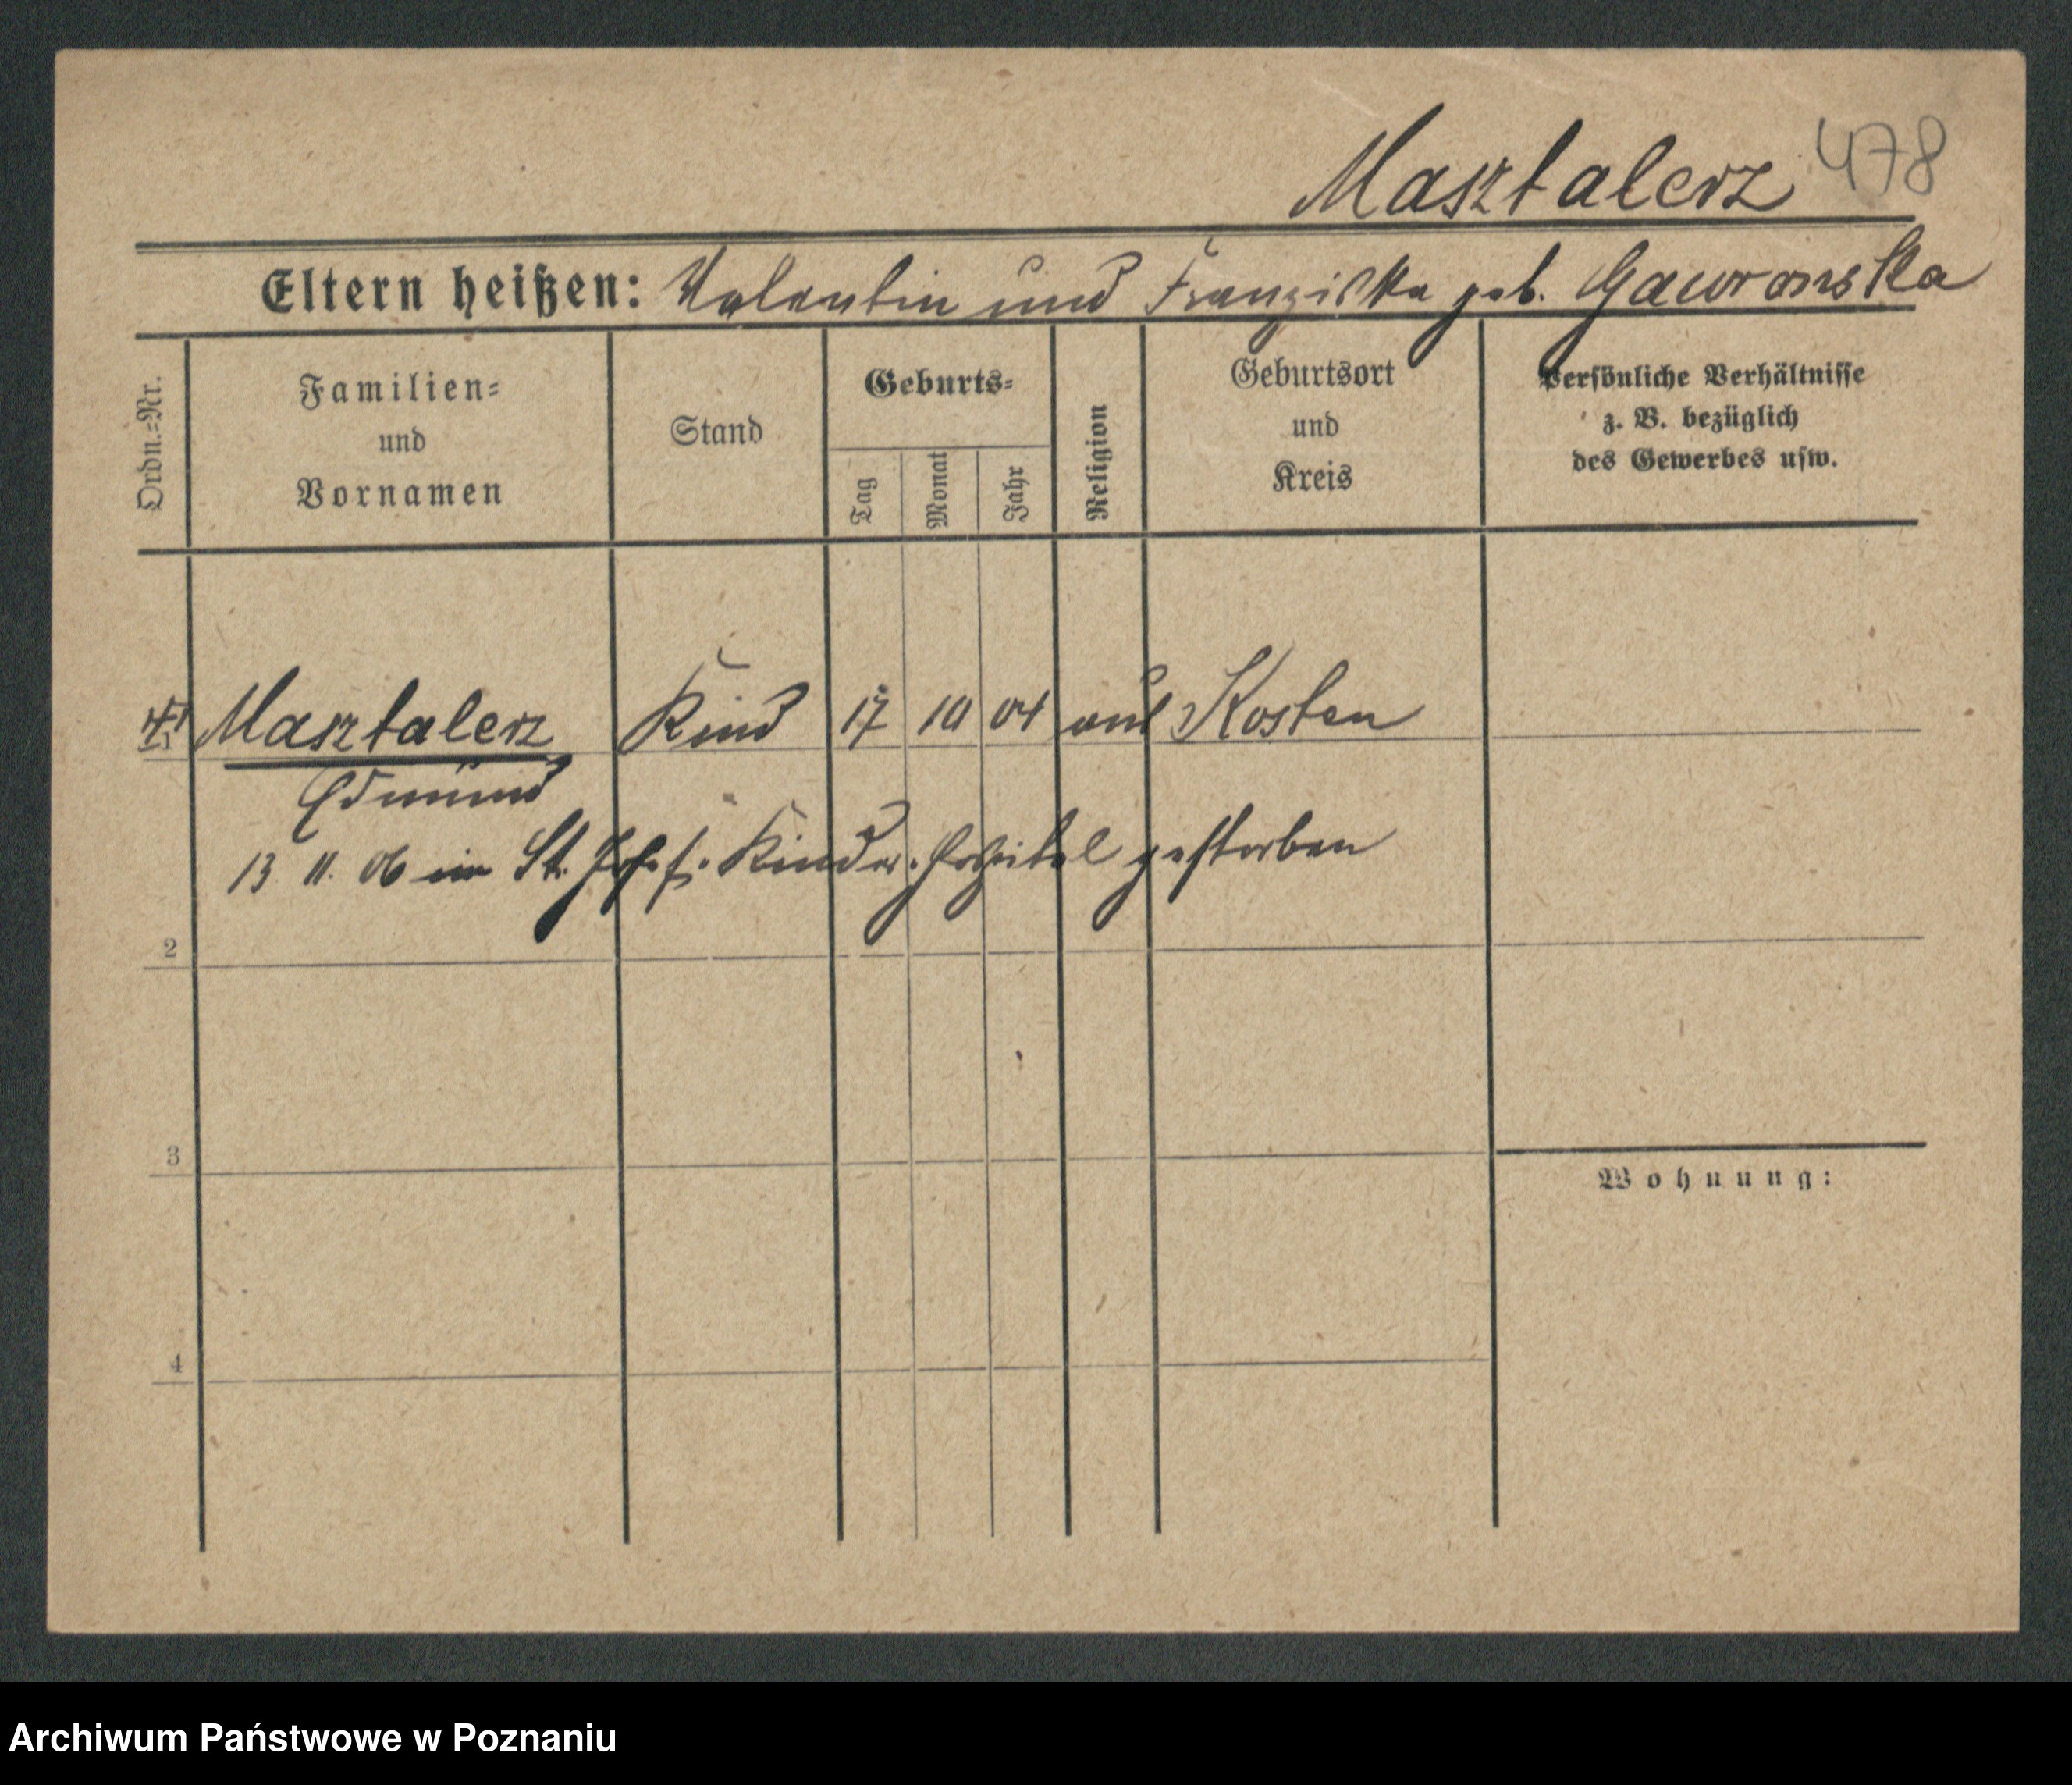 Masztalerz 478
Eltern heißen: Valentin und Franziska geb. Gawronska
Ordn.=Nr.
Familien=
und
Vornamen
Stand
Geburts=
Tag
Monat
Jahr
Religion
Geburtsort
und
Kreis
Persönliche Verhältnisse
z. B. bezüglich
des Gewerbes usw.
Masztalerz Kind 17 10 04 Kosten
Edmund
13 11. 06 im St. Josef. Kinder. Hospital gestorben
2
3
Wohnung:
4
Archiwum Państwowe w Poznaniu